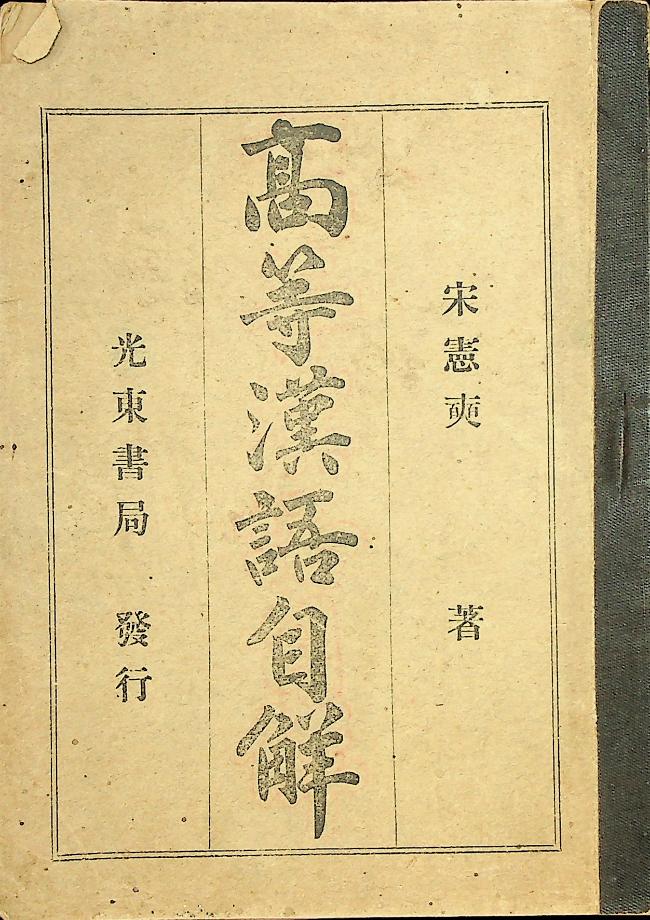 宋憲奭 著
高等漢語自解
光東書局 發行